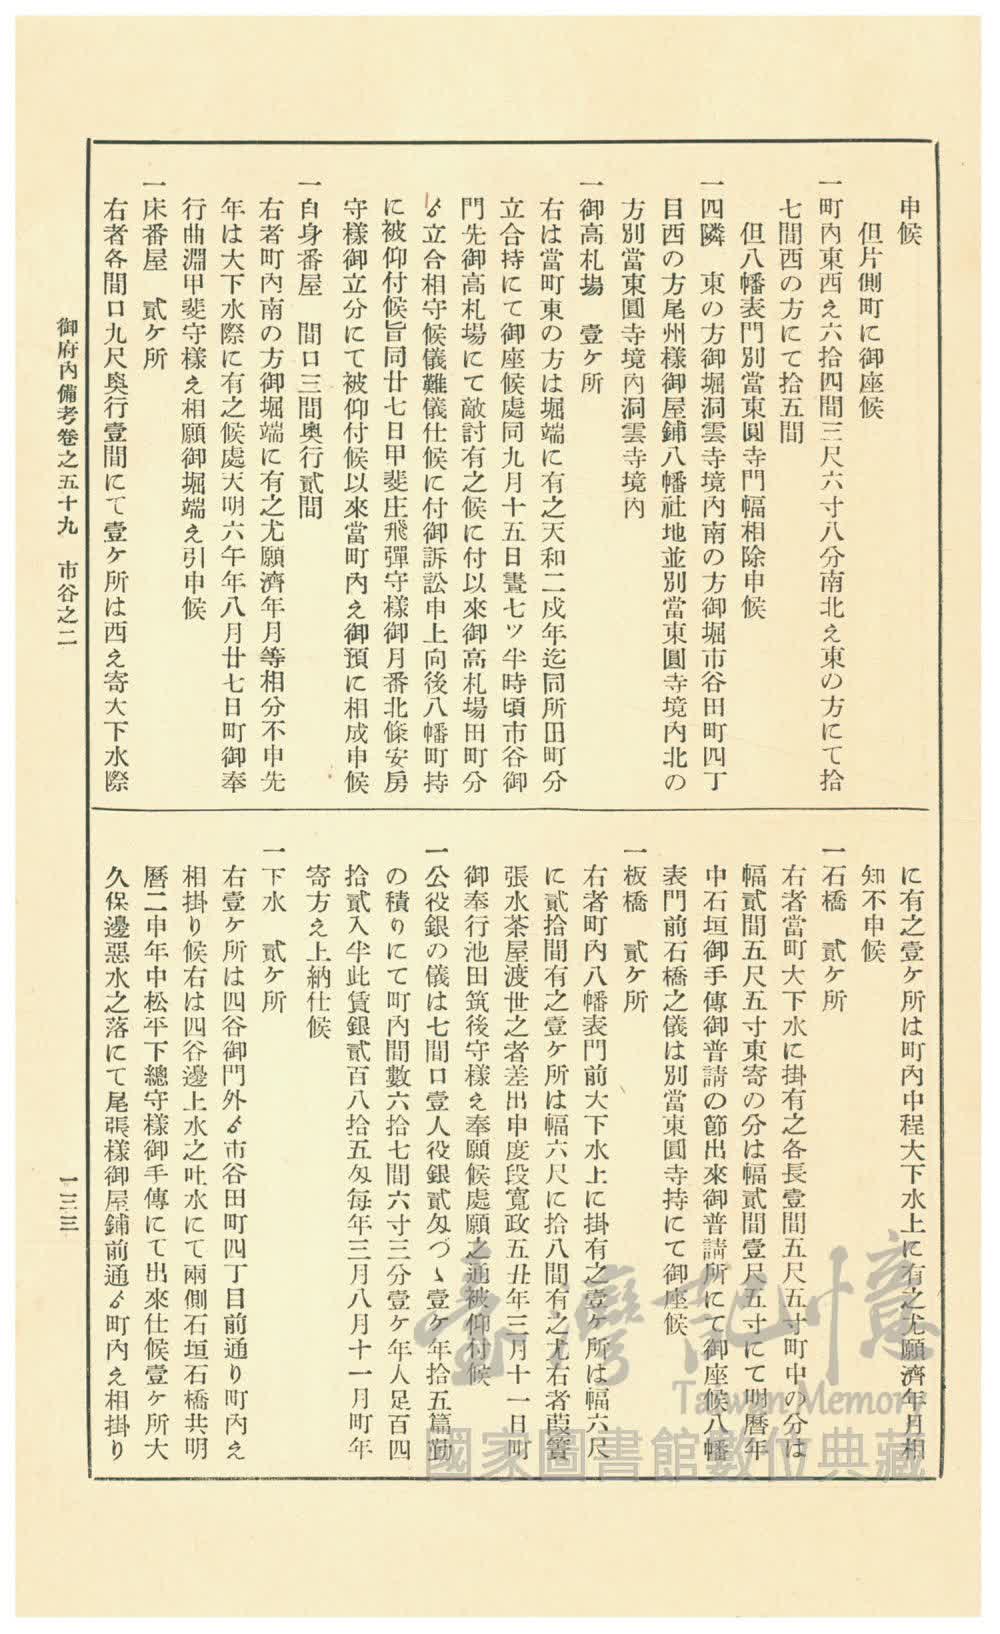 申候
但片側町に御座候
一町內東西え六拾四間三尺六寸八分南北え東の方にて拾
七間西の方にて拾五間
但八幡表門別當東圓寺門幅相除申候
一四隣　東の方御堀洞雲寺境內南の方御堀市谷田町四丁
目西の方尾州樣御屋鋪八幡社地並別當東圓寺境內北の
方別當東圓寺境內洞雲寺境內
一御高札場　壹ケ所
右は當町東の方は堀端に有之天和二戌年迄同所田町分
立合持にて御座候處同九月十五日晝七ツ半時頃市谷御
門先御高札場にて敵討有之候に付以來御高札場田町分
ゟ立合相守候儀難儀仕候に付御訴訟申上向後八幡町持
に被仰付候旨同廿七日甲斐庄飛彈守樣御月番北條安房
守樣御立分にて被仰付候以來當町內え御預に相成申候
一自身番屋　間口三間奧行貳間
右者町內南の方御堀端に有之尤願濟年月等相分不申先
年は大下水際に有之候處天明六午年八月廿七日町御奉
行曲淵甲斐守樣え相願御堀端え引申候
一床番屋　貳ケ所
右者各間口九尺奧行壹間にて壹ケ所は西え寄大下水際
に有之壹ケ所は町內中程大下水上に有之尤願濟年月相
知不申候
一石橋　貳ケ所
右者當町大下水に掛有之各長壹間五尺五寸町中の分は
幅貳間五尺五寸東寄の分は幅貳間壹尺五寸にて明曆年
中石垣御手傳御普請の節出來御普請所にて御座候八幡
表門前石橋之儀は別當東圓寺持にて御座候
一板橋　貳ケ所
右者町內八幡表門前大下水上に掛有之壹ケ所は幅六尺
に貳拾間有之壹ケ所は幅六尺に拾八間有之尤右者葭簀
張水茶屋渡世之者差出申度段寬政五丑年三月十一日町
御奉行池田筑後守樣え奉願候處願之通被仰付候
一公役銀の儀は七間口壹人役銀貳匁づゝ壹ケ年拾五篇勤
の積りにて町內間數六拾七間六寸三分壹ケ年人足百四
拾貳入半此賃銀貳百八拾五匁每年三月八月十一月町年
寄方え上納仕候
一下水　貳ケ所
右壹ケ所は四谷御門外ゟ市谷田町四丁目前通り町內え
相掛り候右は四谷邊上水之吐水にて兩側石垣石橋共明
曆二申年中松平下總守樣御手傳にて出來仕候壹ケ所大
久保邊惡水之落にて尾張樣御屋鋪前通ゟ町內え相掛り
御府內備考卷之五十九　市谷之二
一三三
臺灣記憶
Taiwan Memory
國家圖書館數位典藏